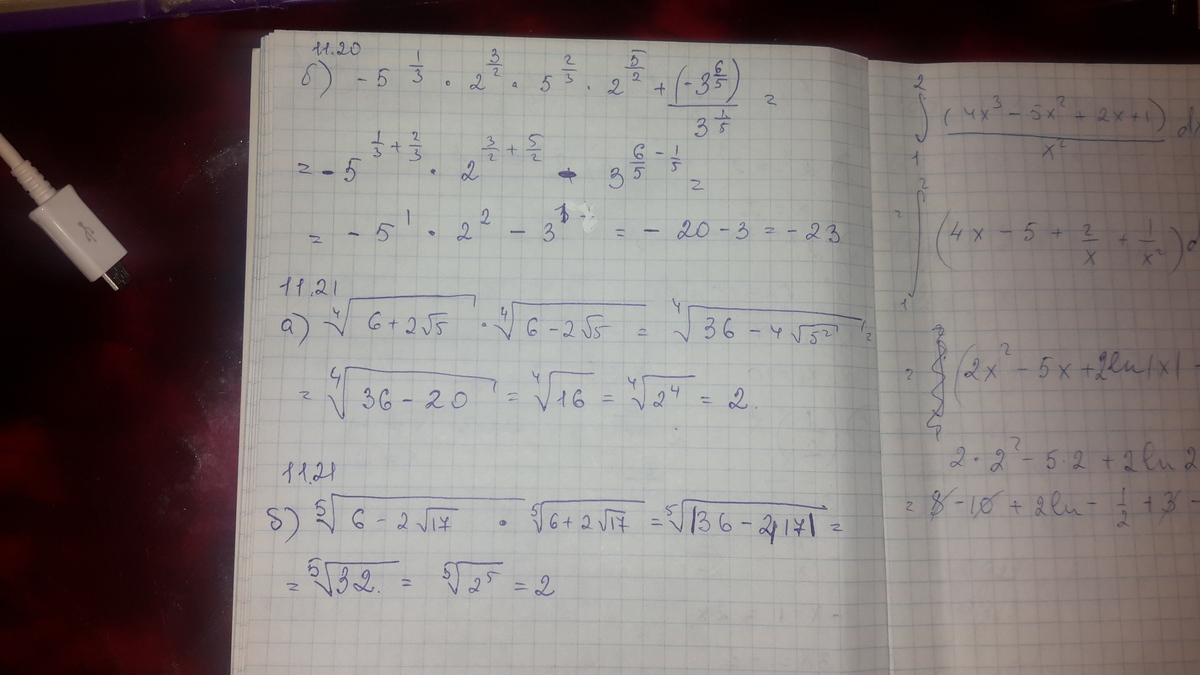 11.20
б) -5^{1/3} · 2^{3/2} · 5^{2/3} · 2^{5/2} + (-3^{6/5})/3^{1/5} =
= -5^{1/3+2/3} · 2^{3/2+5/2} - 3^{6/5-1/5} =
= -5^1 · 2^2 - 3^1 = - 20 - 3 = -23
11.21
а) ⁴√(6+2√5) · ⁴√(6-2√5) = ⁴√(36-4√5²) =
= ⁴√(36-20) = ⁴√16 = ⁴√2⁴ = 2.
11.21
б) ⁵√(6-2√17) · ⁵√(6+2√17) = ⁵√|36-4·17| =
= ⁵√32 = ⁵√2⁵ = 2
∫₁² (4x³-5x²+2x+1)/x²
= ∫₁² (4x-5+2/x+1/x²)
= (2x²-5x+2ln|x| -
2·2²-5·2+2ln2
= 8-10+2ln-1/2+3-